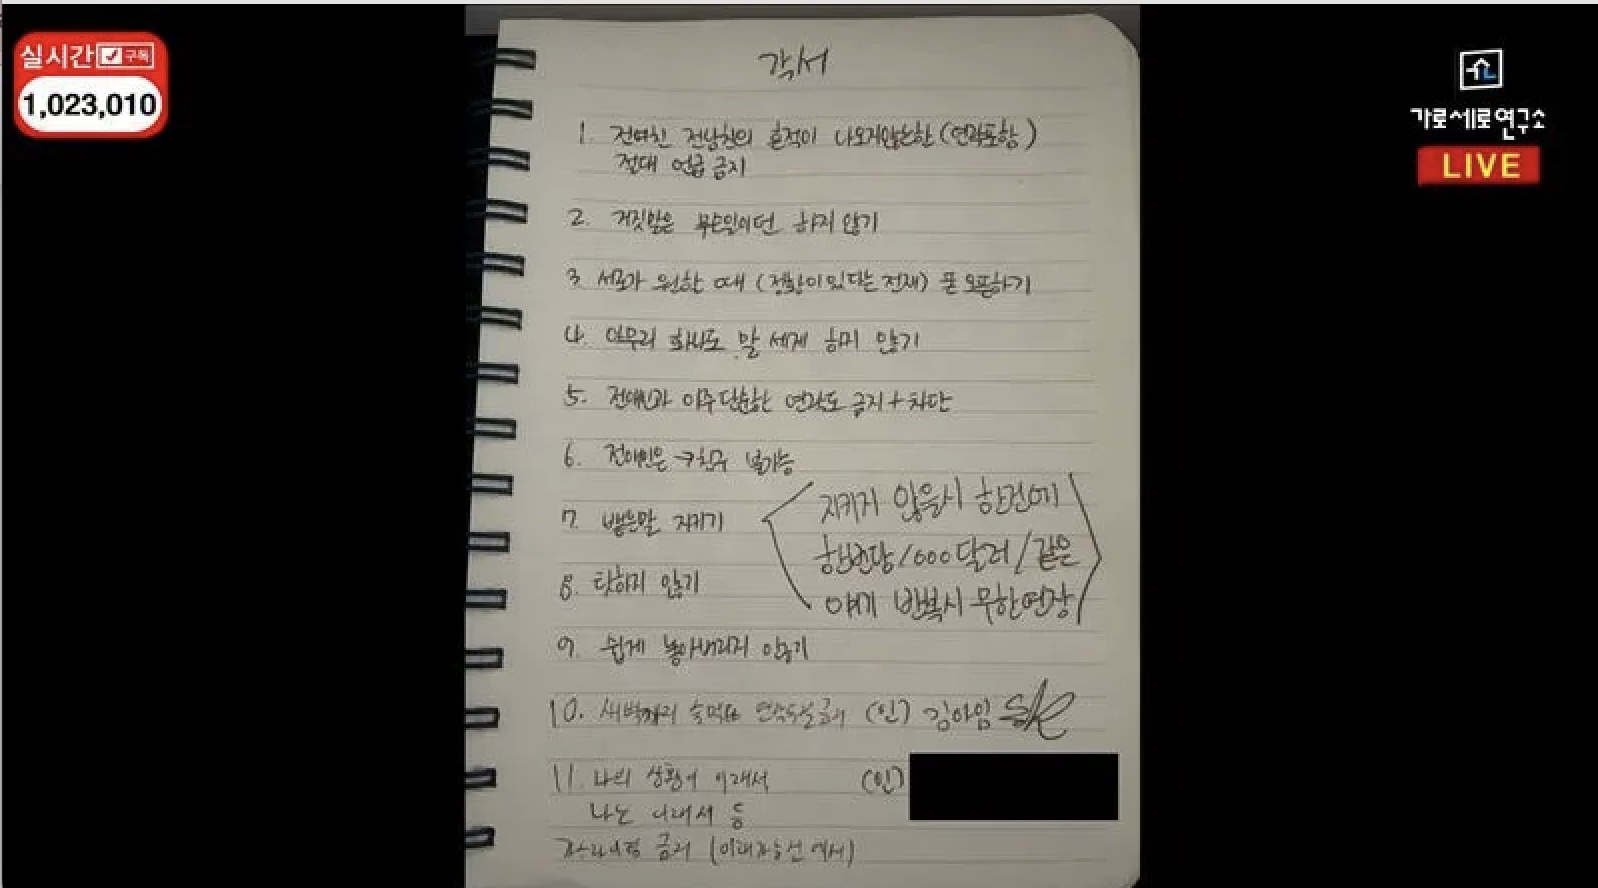 실시간 구독
1,023,010
가로세로연구소
LIVE
각서
1. 전여친 전남친의 흔적이 나오지않는한 (연락포함)
절대 언급 금지
2. 거짓말은 무슨일이던 하지 않기
3 서로가 원할 때 (정황이 있다는 전재) 폰 오픈하기
4. 아무리 화나도 말 세게 하지 않기
5. 전애인과 아주 단순한 연락도 금지 + 차단
6. 전애인은 → 친구 불가능
7. 뱉는말 지키기
지키지 않을시 한건에
한번당 1000달러 / 같은
얘기 반복시 무한연장
8. 탓하지 않기
9. 쉽게 놓아버리지 않기
10. 새벽까지 술먹고 금지 (인)
11. 나의 상황이 이래서 (인)
나는 이래서 등
금지